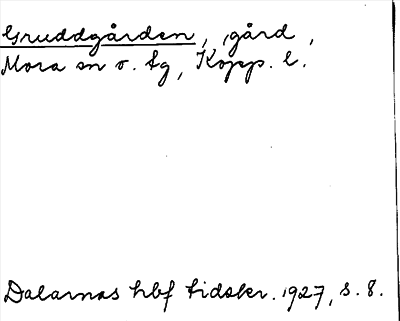 Gruddgården, gård,
Mora sn o. tg, Kopp. l.
Dalarnas hbf tidskr. 1927, s. 8.